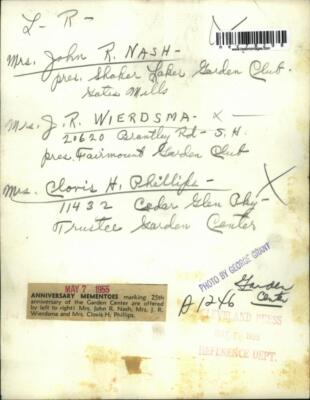 L - R -
Mrs. John R. NASH -
pres. Shaker Lakes Garden Club.
Gates Mills
Mrs. J. R. WIERDSMA - x -
20620 Brantley Rd - S.H.
pres. Fairmount Garden Club
Mrs. Clovis H. Phillips -
11432 Cedar Glen Pky -
Trustee Garden Center
MAY 7 1955
ANNIVERSARY MEMENTOES marking 25th
anniversary of the Garden Center are offered
by left to right: Mrs. John R. Nash, Mrs. J. R.
Wierdsma and Mrs. Clovis H. Phillips.
PHOTO BY GEORGE GRANT
Garden
Center
A1246
CLEVELAND PRESS
REFERENCE DEPT.